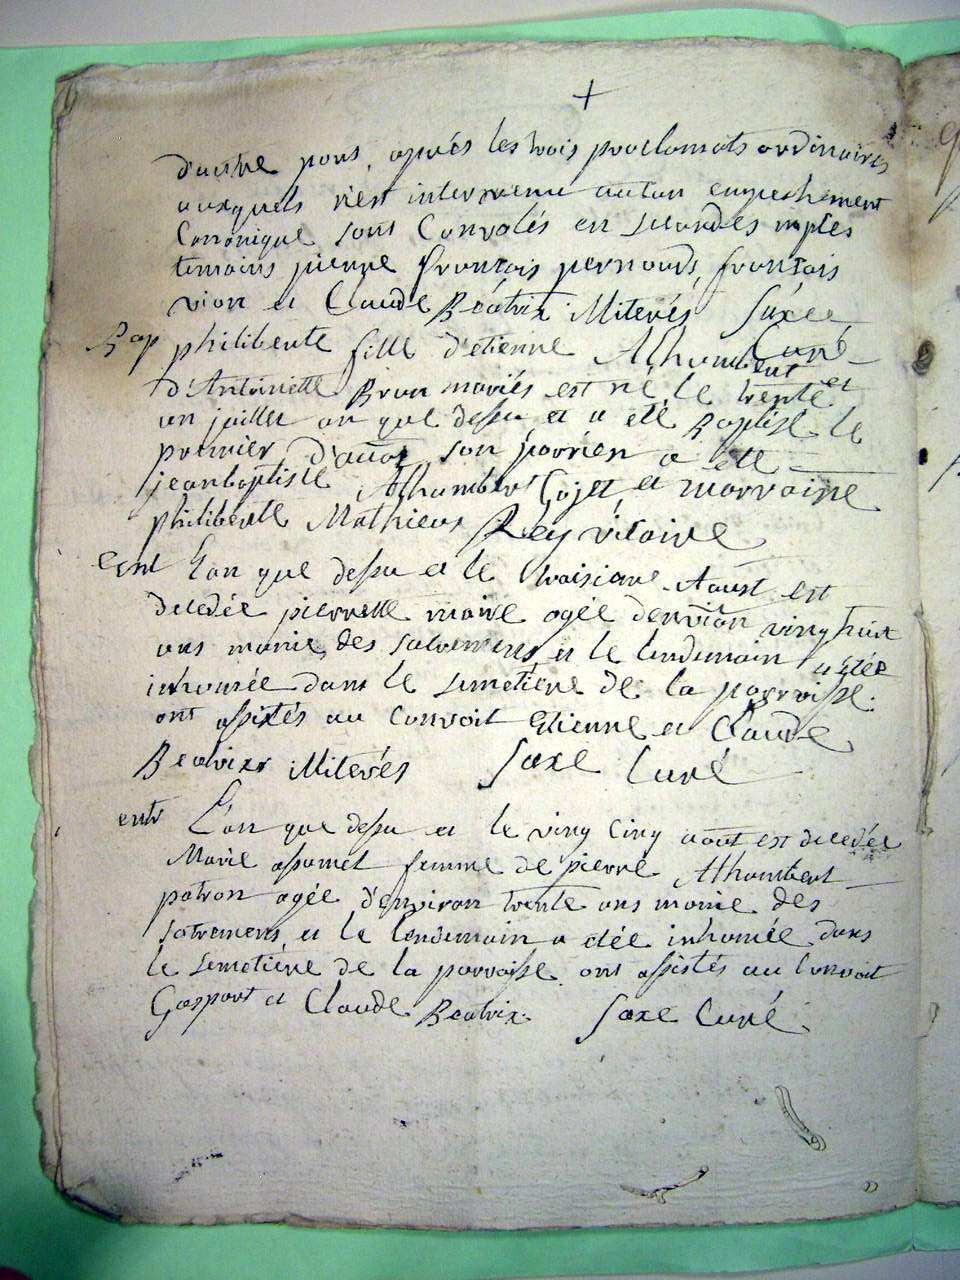 +
d'autre pars, aprés les trois proclamats ordinaires
auxquels n'est intervenu aucun empechement
Cannonique sont Convolés en secondes nopces
temoins pierre françois pernouds françois
vion et Claude Béatrix Miterés Saxe
Curé
Bap philiberte fille d'etienne Athambert et
d'Antoinette Brun mariés est né le trente et
un juillet an que dessu et a eté Baptisé le
premier d'aout son parrien a été
jeanbaptiste Athambert Cojet et marraine
philiberte Mathieux Rey vicaire
ent L'an que dessu et le troisieme Aoust est
decedée pierrette maire agée denviron vinghuit
ans munie des sacremens et le lendemain a etée
inhumée dans le semetiere de la parroisse.
ont assistés au Convoit Etienne et Claude
Beatrixr Miterés Saxe Curé
entr L'an que dessu et le ving Cinq aout est decedée
Marie apsumet femme de pierre Athambert
patron agée d'environ trente ans munie des
sacremens et le lendemain a etée inhumée dans
le semetiere de la parroisse. ont assistés au Convoit
Gaspart et Claude Beatrix. Saxe Curé